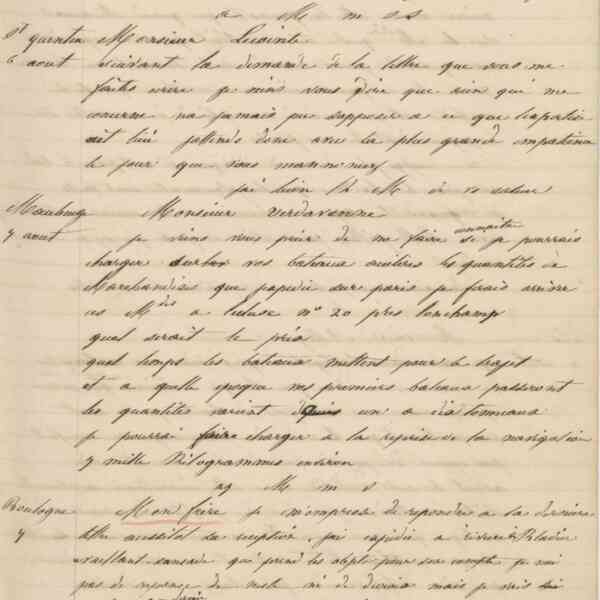 a M m s s
St quentin Monsieur Lecointe
6 aout suivant la demande de la lettre que vous me
faites écrire je viens vous dire que rien qui me
concerne na jamais pu supposer a ce que lexpertise
ait lieu jattends donc avec la plus grande impatience
le jour que vous
jai bien lh M de vs saluer
Maubeuge Monsieur Verdavenne
7 aout je viens vous prier de me faire connaitre si je pourrais
charger sur vos bateaux les quantités de
Marchandises que jexpedie sur paris je ferais arriver
ces Mdes a lecluse n° 20 pres lonchamp
quel serait le prix
quel temps les bateaux mettent pour le trajet
et a quelle epoque vos premiers bateaux passeront
les quantités varient depuis un a dix tonneaux
je pourrai faire charger a la reprise de la navigation
7 mille Kilogrammes environ
M m s
Boulogne Mon frère je mempresse de repondre a ta derniere
7 lettre aussitot sa reception, jai expedié a
vaillant que prend les objets pour son compte je nai
pas de reponse de reste ni de mais je vais